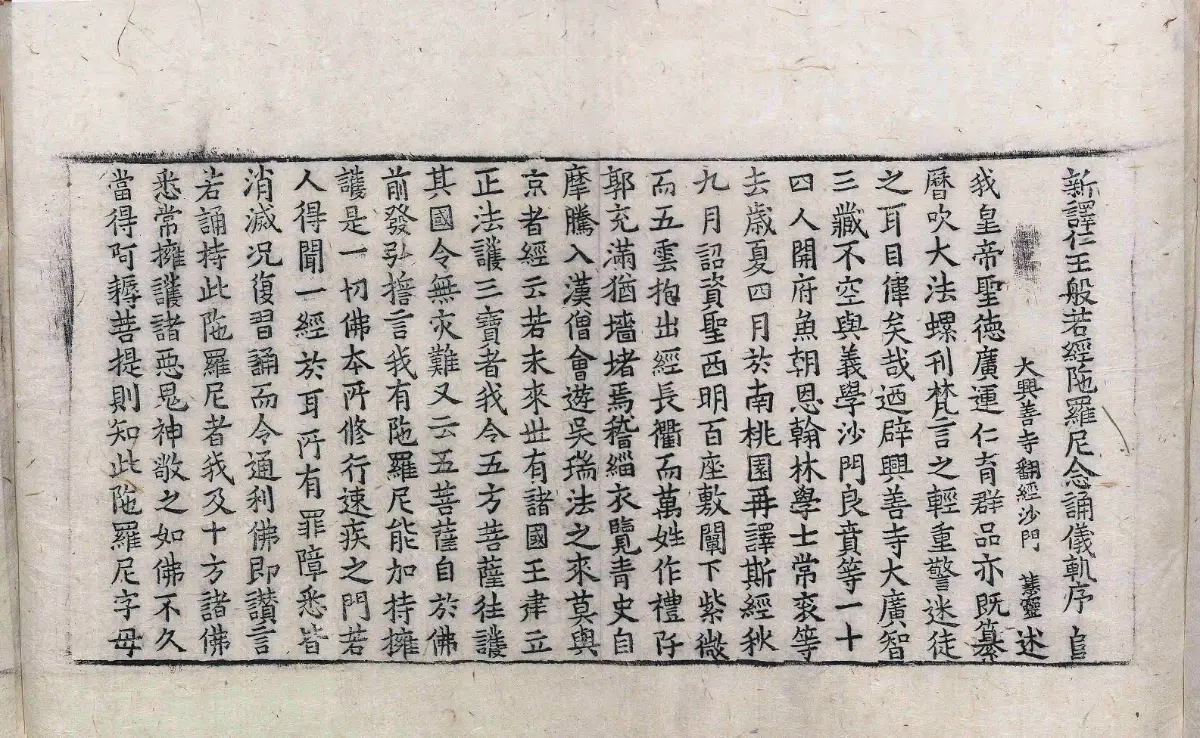 新譯仁王般若經陁羅尼念誦儀軌序
大興善寺翻經沙門 慧靈 述
我皇帝聖德廣運仁育群品亦既纂
曆吹大法螺刊梵言之輕重警迷徒
之耳目偉矣哉迺辟興善寺大廣智
三藏不空與義學沙門良賁等一十
四人開府魚朝恩翰林學士常衮等
去歲夏四月於南桃園再譯斯經秋
九月詔資聖西明百座敷闡下紫微
而五雲抱出經長衢而萬姓作禮阡
郭充滿猶墻堵焉稽緇衣覽青史自
摩騰入漢僧會遊吳瑞法之來莫與
京者經云若未來世有諸國王建立
正法護三寶者我令五方菩薩往護
其國令無灾難又云五菩薩自於佛
前發弘擔言我有陁羅尼能加持擁
護是一切佛本所修行速疾之門若
人得聞一經於耳所有罪障悉皆
消滅况復習誦而令通利佛即讃言
若誦持此陁羅尼者我及十方諸佛
悉常擁護諸惡鬼神敬之如佛不久
當得阿耨菩提則知此陁羅尼字母